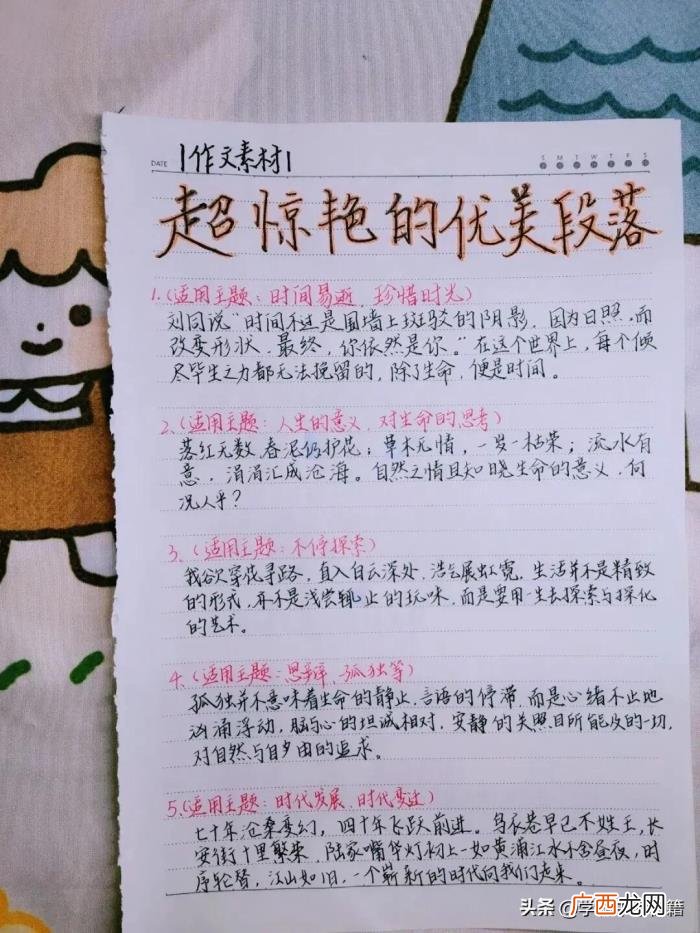 DATE |作文素材|
S M T W T F S
超惊艳的优美段落
1.(适用主题:时间易逝、珍惜时光)
刘同说"时间不过是围墙上斑驳的阴影,因为日照,而
改变形状,最终,你依然是你。"在这个世界上,每个倾
尽毕生之力都无法挽留的,除了生命,便是时间。
2.(适用主题:人生的意义、对生命的思考)
落红无数,春泥仍护花;草木无情,一岁一枯荣;流水有
意,涓涓汇成沧海。自然之情且知晓生命的意义,何
况人乎?
3.(适用主题:不停探索)
我欲穿花寻路,直入白云深处,浩气展虹霓。生活并不是精致
的形式,亦不是浅尝辄止的玩味,而是要用一生去探索与探化
的艺术。
4.(适用主题:思辩、孤独等)
孤独并不意味着生命的静止,言语的停滞,而是心绪不止地
汹涌浮动,脑与心的坦诚相对,安静的关照目所能及的一切,
对自然与自由的追求。
5.(适用主题:时代发展、时代变迁)
七十年沧桑变幻,四十年飞跃前进。乌衣巷早已不姓王,长
安街十里繁荣,陆家嘴华灯初上一如黄浦江水不舍昼夜,时
序轮替,江山如旧,一个崭新的时代向我们走来。
头条 @学 籍
广西龙网